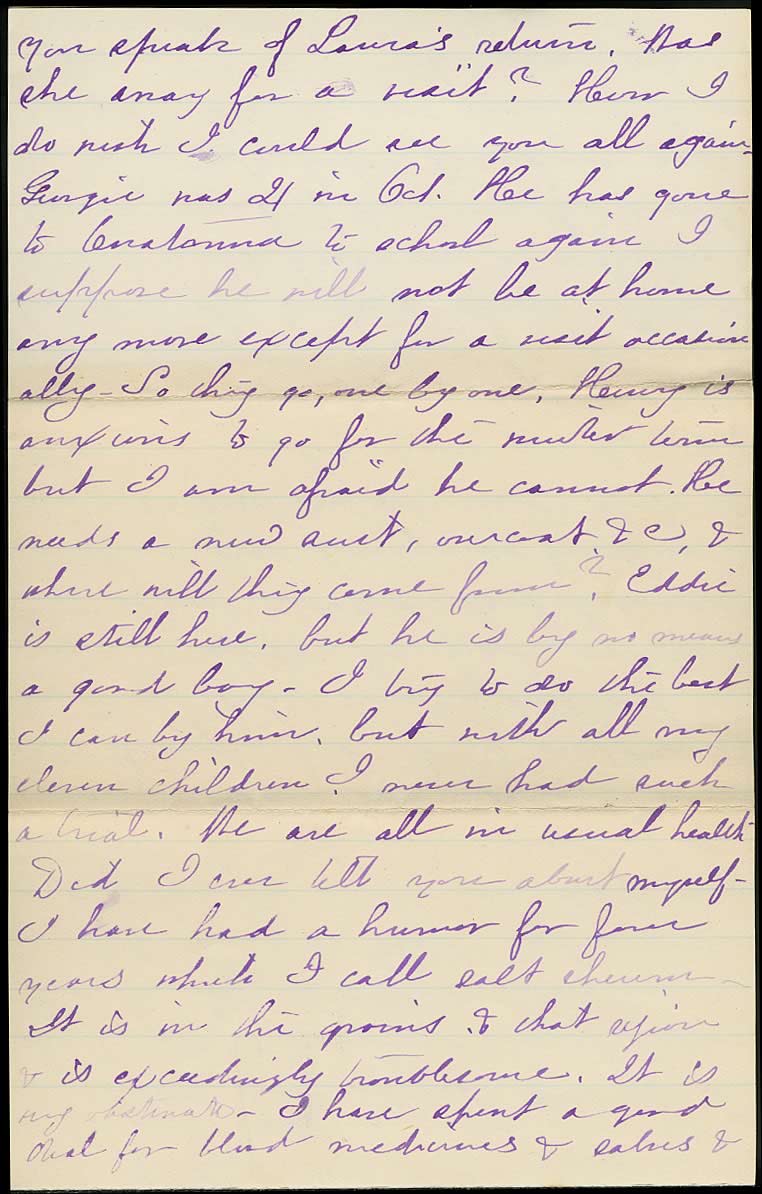 you speak of Laura's return. Was
she away for a visit? How I
do wish I could see you all again-
Georgie was 21 in Oct. He has gone
to Owatonna to school again I
suppose he will not be at home
any more except for a visit occasion
ally - So they go, one by one. Henry is
anxious to go for the winter term
but I am afraid he cannot. He
needs a new suit, overcoat &c, &
where will they come from? Eddie
is still here. but he is by no means
a good boy - I try to do the best
I can by him. but with all my
eleven children I never had such
a trial. We are all in usual health
Did I ever tell you about myself -
I have had a humor for four
years which I call salt rheum -
It is in the groins & that region
& is exceedingly troublesome. It is
very obstinate - I have spent a good
deal for blood medicines & salves &